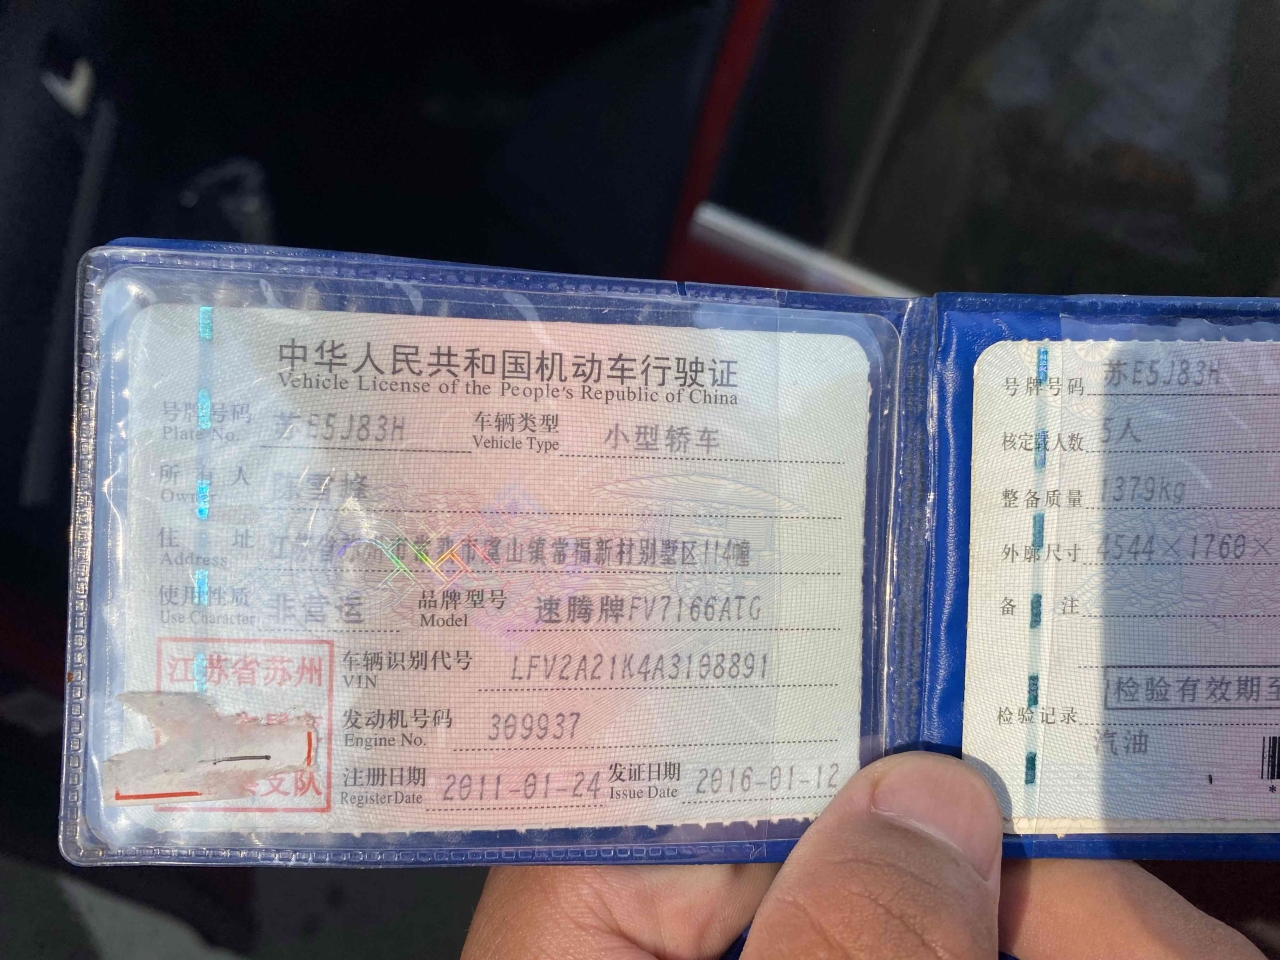 中华人民共和国机动车行驶证
Vehicle License of the People's Republic of China
号牌号码 苏E5J83H 车辆类型 小型轿车
Plate No. Vehicle Type
所有人 雪峰
Owner
住址 江苏省苏州市常熟市虞山镇常福新村别墅区114幢
Address
使用性质 非营运 品牌型号 速腾牌FV7166ATG
Use Character Model
车辆识别代号 LFV2A21K4A3108891
VIN
发动机号码 309937
Engine No.
注册日期 2011-01-24 发证日期 2016-01-12
Register Date Issue Date
江苏省苏州
支队
号牌号码 苏E5J83H
核定载人数 5人
整备质量 1379kg
外廓尺寸 4544×1760×
备注
检验有效期至
检验记录
汽油
*